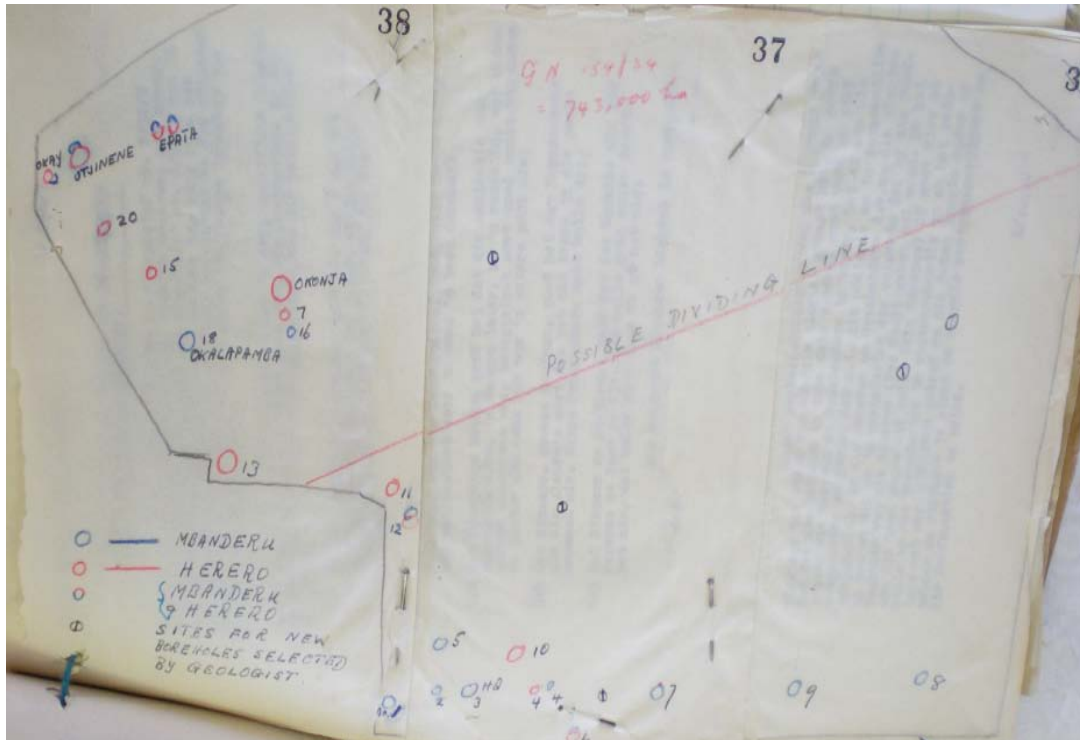 38
37
3
G N 154/24
= 743,000 ha
OKAY
OTJINENE
EPATA
20
15
OKONJA
7
16
18
OKALAPAMBA
POSSIBLE DIVIDING LINE
13
11
12
MBANDERU
HERERO
MBANDERU
& HERERO
SITES FOR NEW
BOREHOLES SELECTED
BY GEOLOGIST.
5
10
2
3 HQ
4
4
7
9
8